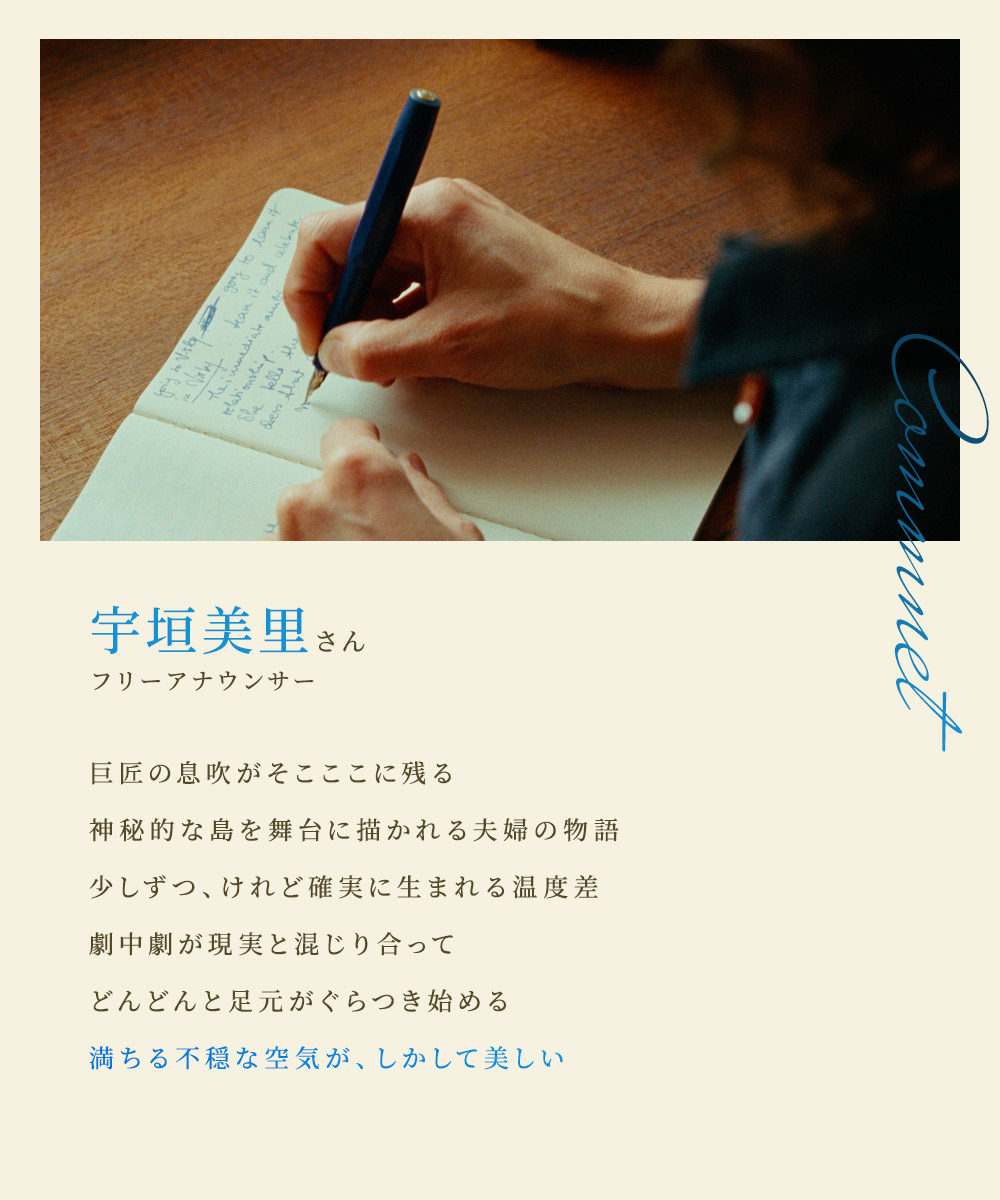 going to learn it
learn it and celebrate
She tells the
does that
Commet
宇垣美里さん
フリーアナウンサー
巨匠の息吹がそこここに残る
神秘的な島を舞台に描かれる夫婦の物語
少しずつ、けれど確実に生まれる温度差
劇中劇が現実と混じり合って
どんどんと足元がぐらつき始める
満ちる不穏な空気が、しかして美しい